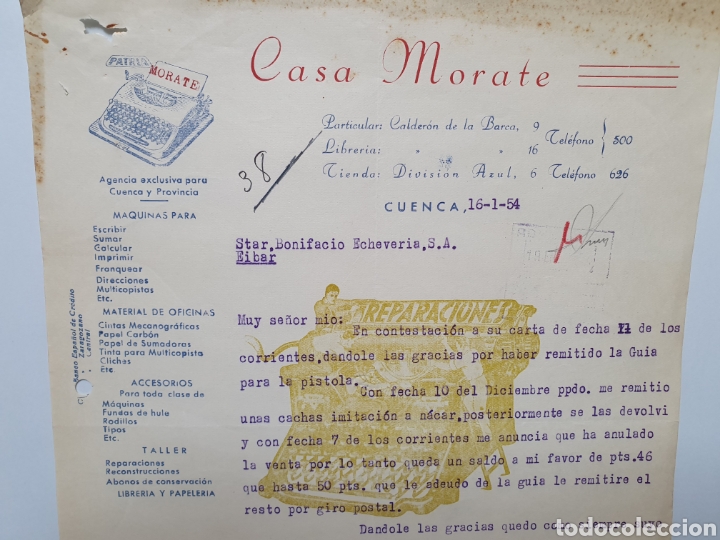 PATRIA
MORATE
Casa Morate
Particular: Calderón de la Barca, 9
Libreria: " " 16
Teléfono 500
Tienda: División Azul, 6 Teléfono 626
38
CUENCA, 16-1-54
Agencia exclusiva para
Cuenca y Provincia
MAQUINAS PARA
Escribir
Sumar
Calcular
Imprimir
Franquear
Direcciones
Multicopistas
Etc.
MATERIAL DE OFICINAS
Cintas Mecanográficas
Papel Carbón
Papel de Sumadoras
Tinta para Multicopista
Cliches
Etc.
ACCESORIOS
Para toda clase de
Máquinas
Fundas de hule
Rodillos
Tipos
Etc.
TALLER
Reparaciones
Reconstrucciones
Abonos de conservación
LIBRERIA Y PAPELERIA
Banco Español de Credito
Zaragozano
Central
Star, Bonifacio Echeveria, S.A.
Eibar
REPARACIONES
Muy señor mio:
En contestación a su carta de fecha 11 de los
corrientes, dandole las gracias por haber remitido la Guia
para la pistola.
Con fecha 10 del Diciembre ppdo. me remitio
unas cachas imitación a nácar, posteriormente se las devolvi
y con fecha 7 de los corrientes me anuncia que ha anulado
la venta por lo tanto queda un saldo a mi favor de pts. 46
que hasta 50 pts. que le adeudo de la guia le remitire el
resto por giro postal.
Dandole las gracias quedo como siempre suyo
todocoleccion